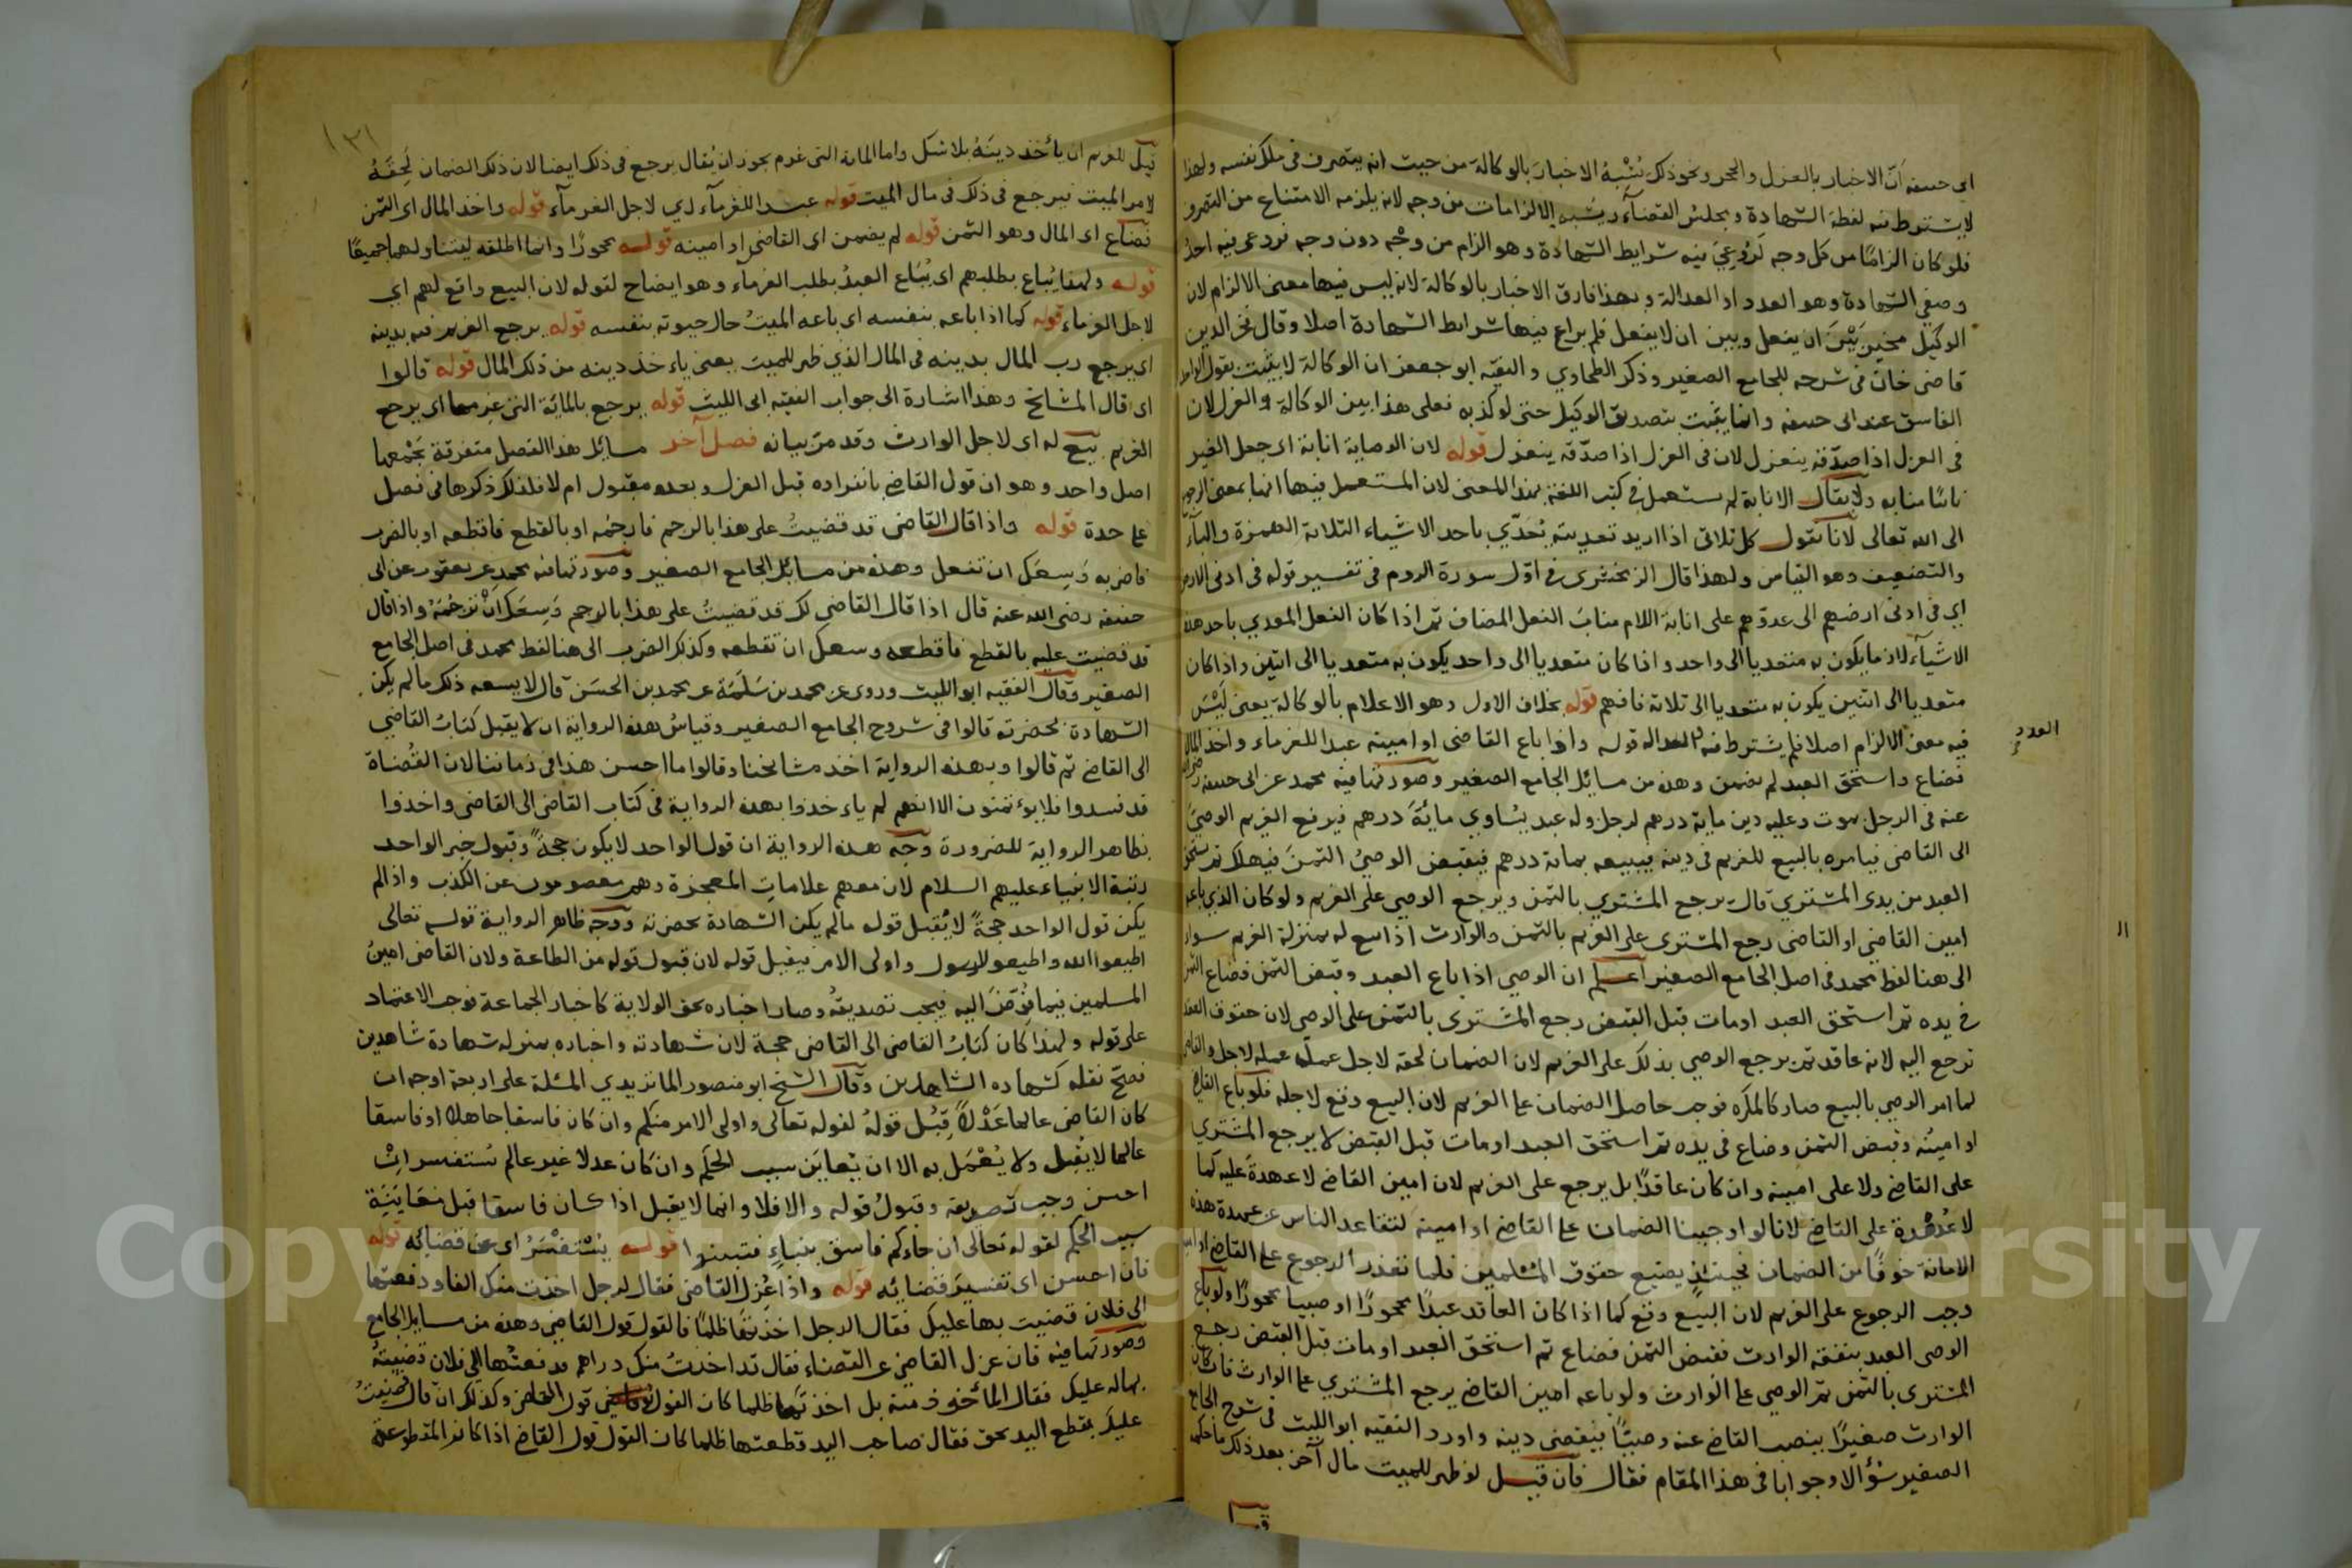 ابى حنيفه انّ الاخبار بالعزل والحجر ونحو ذلك يُشْبِهُ الاخبارَ بالوكالة من حيث انه يتصرف فى ملك نفسه ولهذا
لا يشترط فيه لفظة الشهادة ومجلس القضآء ويشبه الالزامات من وجه لانه يلزمه الامتناع من التصرف
فلو كان الزامًا من كل وجه لَرُوعِىَ فيه شرايط الشهادة وهو الزام من وجْه دون وجه فروعى فيه احدُ
وصفى الشهادة وهو العدد او العدالة وبهذا فارق الاخبار بالوكالة لانه ليس فيها معنى الالزام لان
الوكيل مخيّر بَيْنَ ان يفعل وبين ان لا يفعل فلم يراع فيها شرايط الشهادة اصلا وقال فخر الدين
قاضى خان فى شرحه للجامع الصغير وذكر الطحاوي والفقيه ابو جعفر ان الوكالة لا يثبت بقول الواحد
الفاسق عند ابى حنيفه وانما يثبت بتصديق الوكيل حتى لو كذبه فعلى هذا بين الوكالة والعزل لان
فى العزل اذا صدّقه ينعزل لان فى العزل اذا صدّقه ينعزل قوله لان الوصاية انابة اى جعل الغير
نائبًا منابه ولا يقال الانابة لم يستعمل فى كتب اللغة بهذا المعنى لان المستعمل فيها انما بمعنى الرجوع
الى الله تعالى لانا نقول كل ثلاثى اذا اريد تعديته يُعدّي باحد الاشياء الثلاثة الهمزة والبآء
والتضعيف وهو القياس ولهذا قال الزمخشرى فى اوّل سورة الروم فى تفسير قوله فى ادنى الارض
اى فى ادنى ارضهم الى عدوّهم على انابة اللام منابَ الفعل المضاف ثم اذا كان الفعل المعدي باحد هذه
الاشيآء لازما يكون به متعديا الى واحد واذا كان متعديا الى واحد يكون به متعديا الى اثنين واذا كان
متعديا الى اثنين يكون به متعديا الى ثلاثة فافهم قوله بخلاف الاول وهو الاعلام بالوكالة يعنى لَيْسَ
فيه معنى الالزام اصلا فلم يشترط فيه العدالة قوله واذا باع القاضى او امينه عبدا للغرماء واخذ المال
العدد و
فضاع واستحق العبد لم يضمن وهذه من مسائل الجامع الصغير وصورتها فيه محمد عن ابى حنيفه رضى الله
عنه فى الرجل يموت وعليه دين مائة درهم لرجل وله عبد يُساوي مائةَ درهم فيرفع الغريم الوصىَّ
الى القاضى فيامره بالبيع للغريم فى دينه فيبيعه بمائة درهم فيقبض الوصىُّ الثمنَ فيهلك ثم يستحق
العبد من يدى المشتري قال يرجع المشتري بالثمن ويرجع الوصى على الغريم ولو كان الذى باعه
امين القاضى او القاضى رجع المشترى على الغريم بالثمن والوارث اذا بيع له بمنزلة الغريم سواء
الى هنا لفظ محمد فى اصل الجامع الصغير اعلم ان الوصى اذا باع العبد وقبض الثمن فضاع الثمن
فى يده ثم استحق العبد او مات قبل القبض رجع المشترى بالثمن على الوصى لان حقوق العقد
ترجع اليه لانه عاقد ثم يرجع الوصى بذلك على الغريم لان الضمان لحقه لاجل عمله عمله لاجله والقاضى
لما امر الوصى بالبيع صار كالمكره فوجب حاصل الضمان على الغريم لان البيع وقع لاجله فلو باع القاضى
او امينُه وقبض الثمن وضاع فى يده ثم استحق العبد او مات قبل القبض لا يرجع المشتري
على القاضى ولا على امينه وان كان عاقدًا بل يرجع على الغريم لان امين القاضى لا عهدةَ عليه كما
لا عُهْدة على القاضى لانا لو اوجبنا الضمان على القاضى او امينه لتقاعد الناس عن عهدة هذه
الامانة خوفًا من الضمان فحينئذٍ يضيع حقوق المسلمين فلما تعذر الرجوع على القاضى او امينه
وجب الرجوع على الغريم لان البيع وقع كما اذا كان العاقد عبدًا محجورًا او صبيا محجورًا ولو باع
الوصى العبد بنفقة الوارث فقبض الثمن فضاع ثم استحق العبد او مات قبل القبض رجع
المشترى بالثمن ثم الوصى على الوارث ولو باعه امين القاضى يرجع المشتري على الوارث فان كان
الوارث صغيرًا ينصب القاضى عنه وصيًّا فيقضى دينه واورد الفقيه ابو الليث فى شرح الجامع
الصغير سُؤالا وجوابا فى هذا المقام فقال فان قيل لو ظهر للميت مال آخر بعد ذلك ما حكمه
قيل
١٣١
قيل للغريم ان يأخذ دينَهُ بلا شك واما المائة التى غرم يجوز ان يُقال يرجع فى ذلك ايضا لان ذلك الضمان لَحِقَهُ
لامر الميت فيرجع فى ذلك فى مال الميت قوله عبدا للغرمآء اي لاجل الغرمآء قوله واخذ المال اى الثمن
فضاع اى المال وهو الثمن قوله لم يضمن اى القاضى او امينه قوله محجورًا وانما اطلقه ليتناولهما جميعًا
قوله ولهذا يُباع بطلبهم اى يُبَاع العبدُ بطلب الغرمآء وهو ايضاح لقوله لان البيع واقع لهم اي
لاجل الغرماء قوله كما اذا باعه بنفسه اى باعه الميتُ حال حيوته بنفسه قوله يرجع الغريم فيه بدينه
اى يرجع رب المال بدينه فى المال الذي ظهر للميت يعنى ياءخذ دينه من ذلك المال قوله قالوا
اى قال المشائخ وهذا اشارة الى جواب الفقيه ابى الليث قوله يرجع بالمائة التى غرمها اى يرجع
الغريم بيع له اى لاجل الوارث وقد مرّ بيانه فصل آخر مسائل هذا الفصل متفرقة يَجْمَعها
اصل واحد وهو ان قول القاضى بانفراده قبل العزل وبعده مقبول ام لا فلذلك ذكرها فى فصل
على حدة قوله واذا قال القاضى قد قضيتُ على هذا بالرجم فارجُمْه او بالقطع فاقطعه او بالضرب
فاضربه وَسِعَك ان تفعل وهذه من مسائل الجامع الصغير وصورتها فيه محمد عن يعقوب عن ابى
حنيفه رضى الله عنه قال اذا قال القاضى لك قد قضيتُ على هذا بالرجم وَسِعَك اَنْ تَرجُمَهُ واذا قال
قد قضيت عليه بالقطع فاقطعه وسعك ان تقطعه وكذلك الضرب الى هنا لفظ محمد فى اصل الجامع
الصغير وقال الفقيه ابو الليث وروى عن محمد بن سَلَمَة عن محمد بن الحسَن قال لا يسعه ذلك ما لم يكن
الشهادة بحضرته قالوا فى شروح الجامع الصغير وقياسُ هذه الرواية ان لا يقبل كتابُ القاضي
الى القاضى ثم قالوا وبهذه الرواية اخذ مشائخنا وقالوا ما احسن هذا فى زماننا لان القُضاة
قد فسدوا فلا يوءتمنون الا انهم لم ياءخذوا بهذه الرواية فى كتاب القاضى الى القاضى واخذوا
بظاهر الرواية للضرورة وجه هذه الرواية ان قول الواحد لا يكون حجةً وقبول خبر الواحد
رتبة الانبياء عليهم السلام لان معهم علاماتِ المعجزة وهم معصومون عن الكذب واذا لم
يكن قول الواحد حجةً لا يُقبل قوله ما لم يكن الشهادة بحضرته ووجه ظاهر الرواية قوله تعالى
اطيعوا الله واطيعوا الرسول واولى الامر فيقبل قوله لان قبول قوله من الطاعة ولان القاضى امينُ
المسلمين فيما فُوّضَ اليه فيجب تصديقُه وصار اخباره بحق الولاية كاخبار الجماعة فوجب الاعتماد
على قوله ولهذا كان كتابُ القاضى الى القاضى حجة لان شهادته واخباره بمنزلة شهادة شاهدين
فصحّ نقله كشهاده الشاهدين وقال الشيخ ابو منصور الماتريدي المسئلة على اربعة اوجه ان
كان القاضى عالما عَدْلاً قِبُل قولهُ لقوله تعالى واولى الامر منكم وان كان فاسقا جاهلا او فاسقا
عالما لا يُقبل ولا يُعْمَل به الا ان يُعايَن سبب الحكم وان كان عدلا غير عالم يُستفسر انْ
احسن وجب تصديقه وقبولُ قوله والا فلا وانما لا يقبل اذا كان فاسقا قبل معَايَنَة
سبب الحكم لقوله تعالى ان جاءكم فاسق بنباءٍ فتبينوا قوله يُسْتَفْسَرُ اى عن قضائه قوله
فان احسن اى تفسيرَ قضائه قوله واذا عُزِل القاضى فقال لرجل اخذت منك الفا ودفعتها
الى فلان قضيت بها عليك فقال الرجل اخذتَها ظلمًا فالقول قول القاضى وهذه من مسائل الجامع
وصورتها فيه فان عزل القاضى عن القضاء فقال قد اخذتُ منك دراهم قد دفعتُها الى فلان قضيتُ
بها له عليك فقال المأخوذ منه بل اخذتَها ظلما كان القول قول القاضى وكذلك ان قال قضيتُ
عليكَ بقطع اليد بحق فقال صاحب اليد قطعتها ظلما كان القول قول القاضى اذا كان المقطوعة